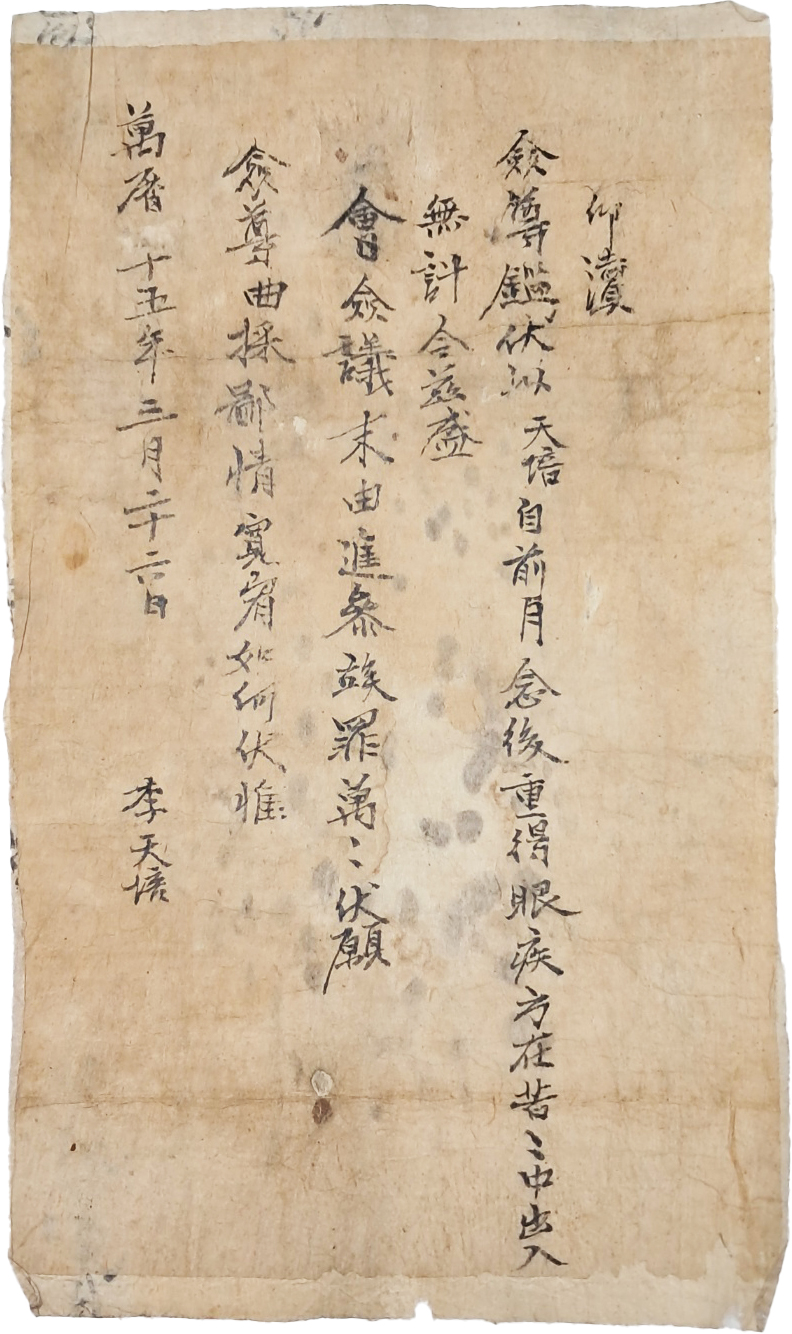 仰瀆
僉尊鑑伏以天培自前月念後重得眼疾方在苦〻中出入
無計今玆盛
會僉議末由進參竢罪萬〻伏願
僉尊曲採鄙情寬宥如何伏惟
萬曆十五年三月二十六日 李天培